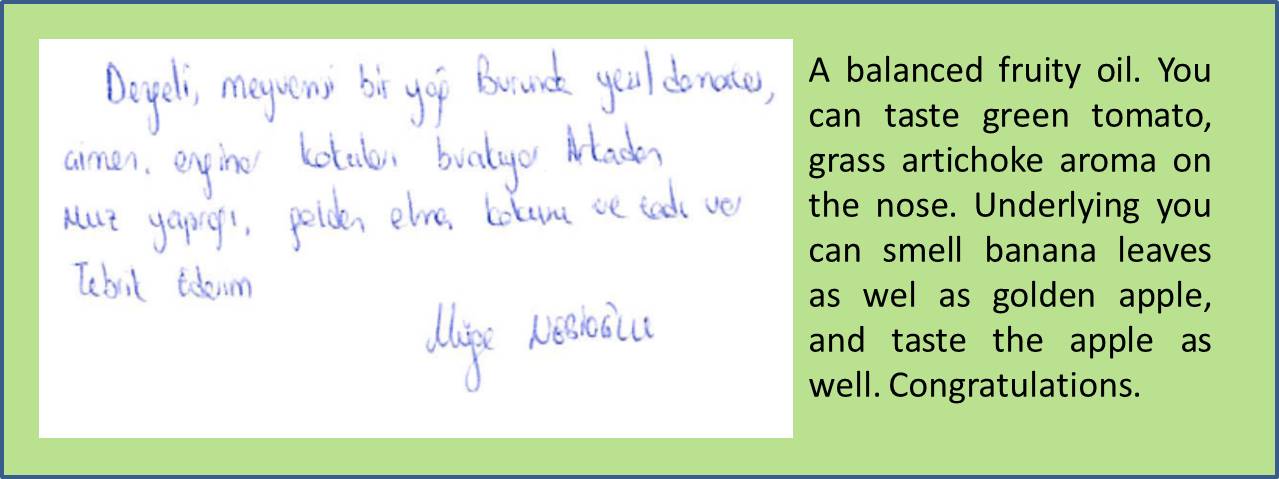 Dengeli, meyvemsi bir yapı Burunda yeşil domates,
çimen, enginar kokuları bırakıyor Arkadan
Muz yaprağı, golden elma kokusu ve tadı var
Tebrik Ederim
Müge NEBİOĞLU
A balanced fruity oil. You
can taste green tomato,
grass artichoke aroma on
the nose. Underlying you
can smell banana leaves
as wel as golden apple,
and taste the apple as
well. Congratulations.